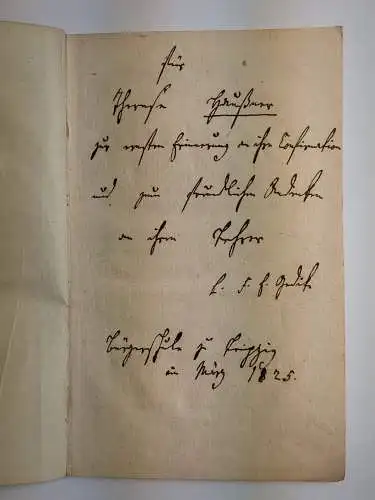 für
Therese Haußner
zur ernsten Erinnerung an ihre Confirmation
und zum freundlichen Andenken
an ihren Lehrer
L. F. E. Gedike
Bürgerschule zu Leipzig
im März 1825.